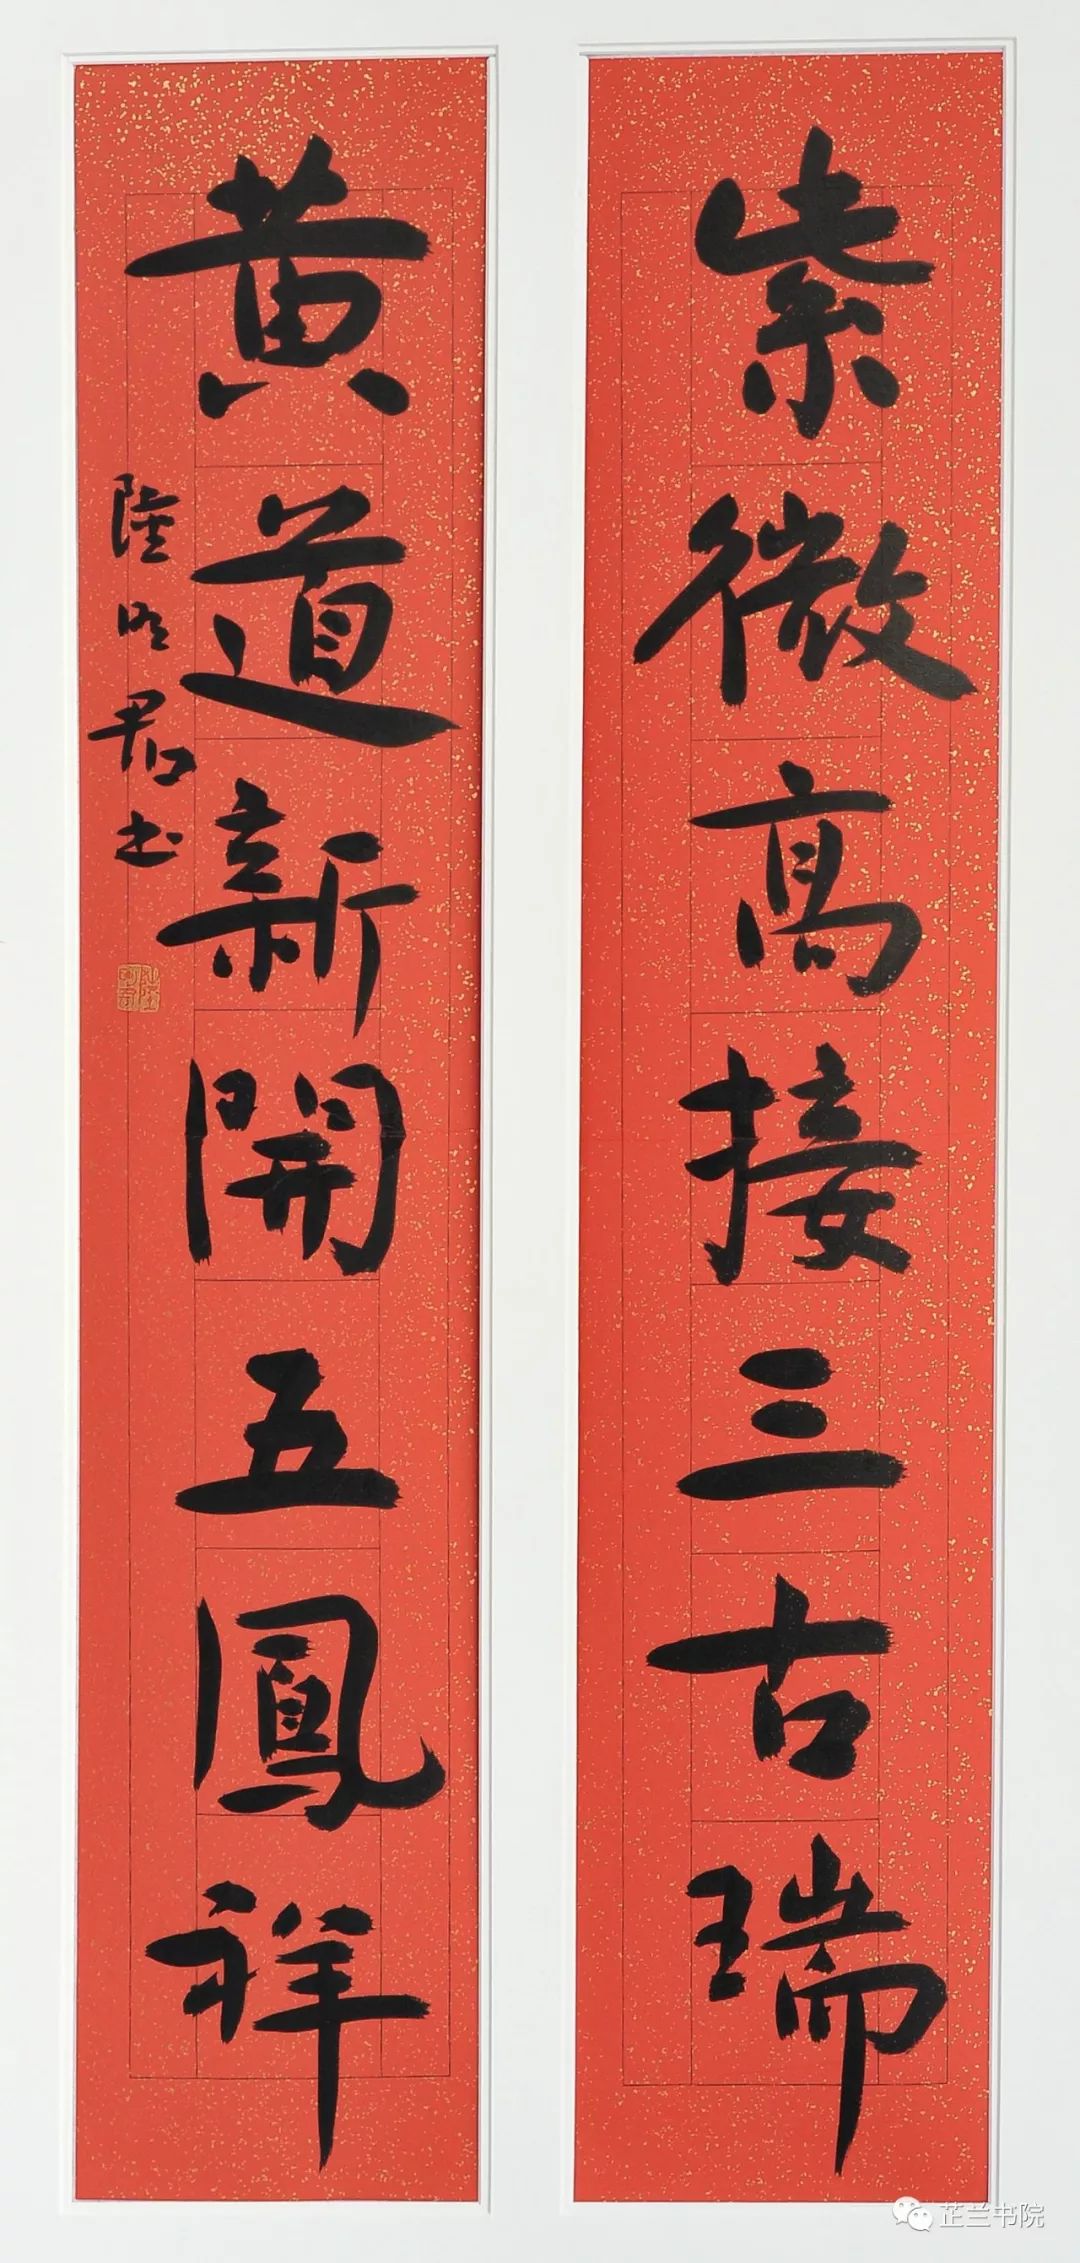 紫微高接三古瑞
黄道新開五鳳祥
陸明君书
芷兰书院